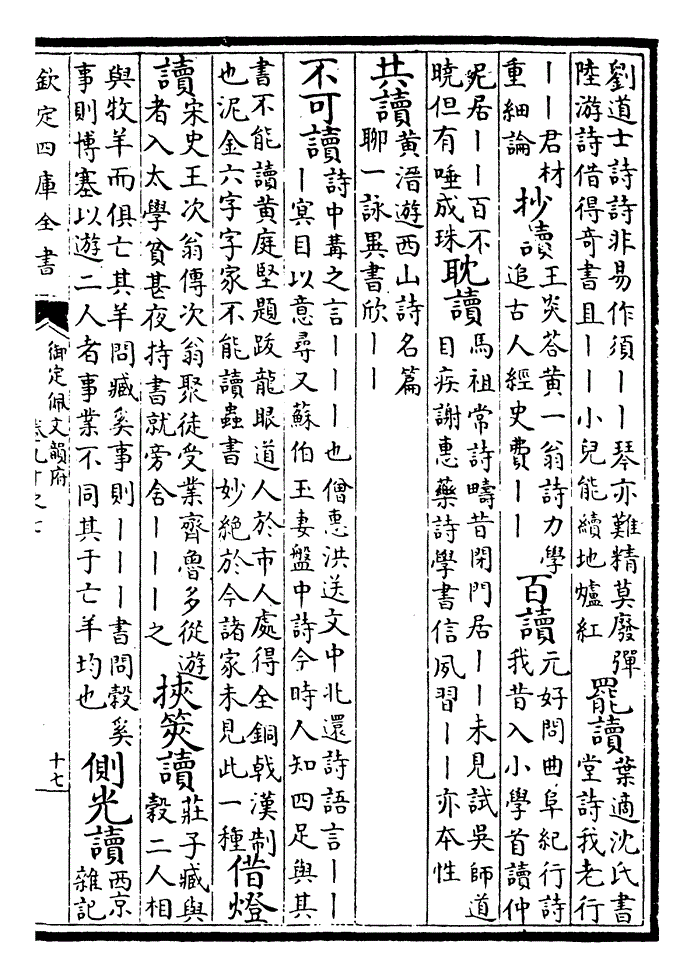 劉道士詩詩非易作須丨丨琴亦難精莫廢彈
陸游詩借得奇書且丨丨小兒能續地爐紅
罷讀
葉適沈氏書
堂詩我老行
丨丨君材
重細論
抄讀
王炎荅黃一翁詩力學
追古人經史費丨丨
百讀
元好問曲阜紀行詩
我昔入小學首讀仲
尼居丨丨百不
曉但有唾成珠
耽讀
馬祖常詩疇昔閉門居丨丨未見試吳師道
目疾謝惠藥詩學書信夙習丨丨亦本性
共讀
黃溍遊西山詩名篇
聊一詠異書欣丨丨
不可讀
詩中冓之言丨丨丨也僧惠洪送文中北還詩語言丨丨
丨冥目以意尋又蘇伯玉妻盤中詩今時人知四足與其
書不能讀黃庭堅題跋龍眼道人於市人處得全銅戟漢制
也泥金六字字家不能讀蟲書妙絕於今諸家未見此一種
借燈
讀
宋史王次翁傳次翁聚徒受業齊魯多從遊
者入太學貧甚夜持書就旁舍丨丨丨之
挾筴讀
莊子臧與
穀二人相
與牧羊而俱亡其羊問臧奚事則丨丨丨書問穀奚
事則博塞以遊二人者事業不同其于亡羊均也
側光讀
西京
雜記
欽定四庫全書
御定佩文韻府
卷九十之七
十七